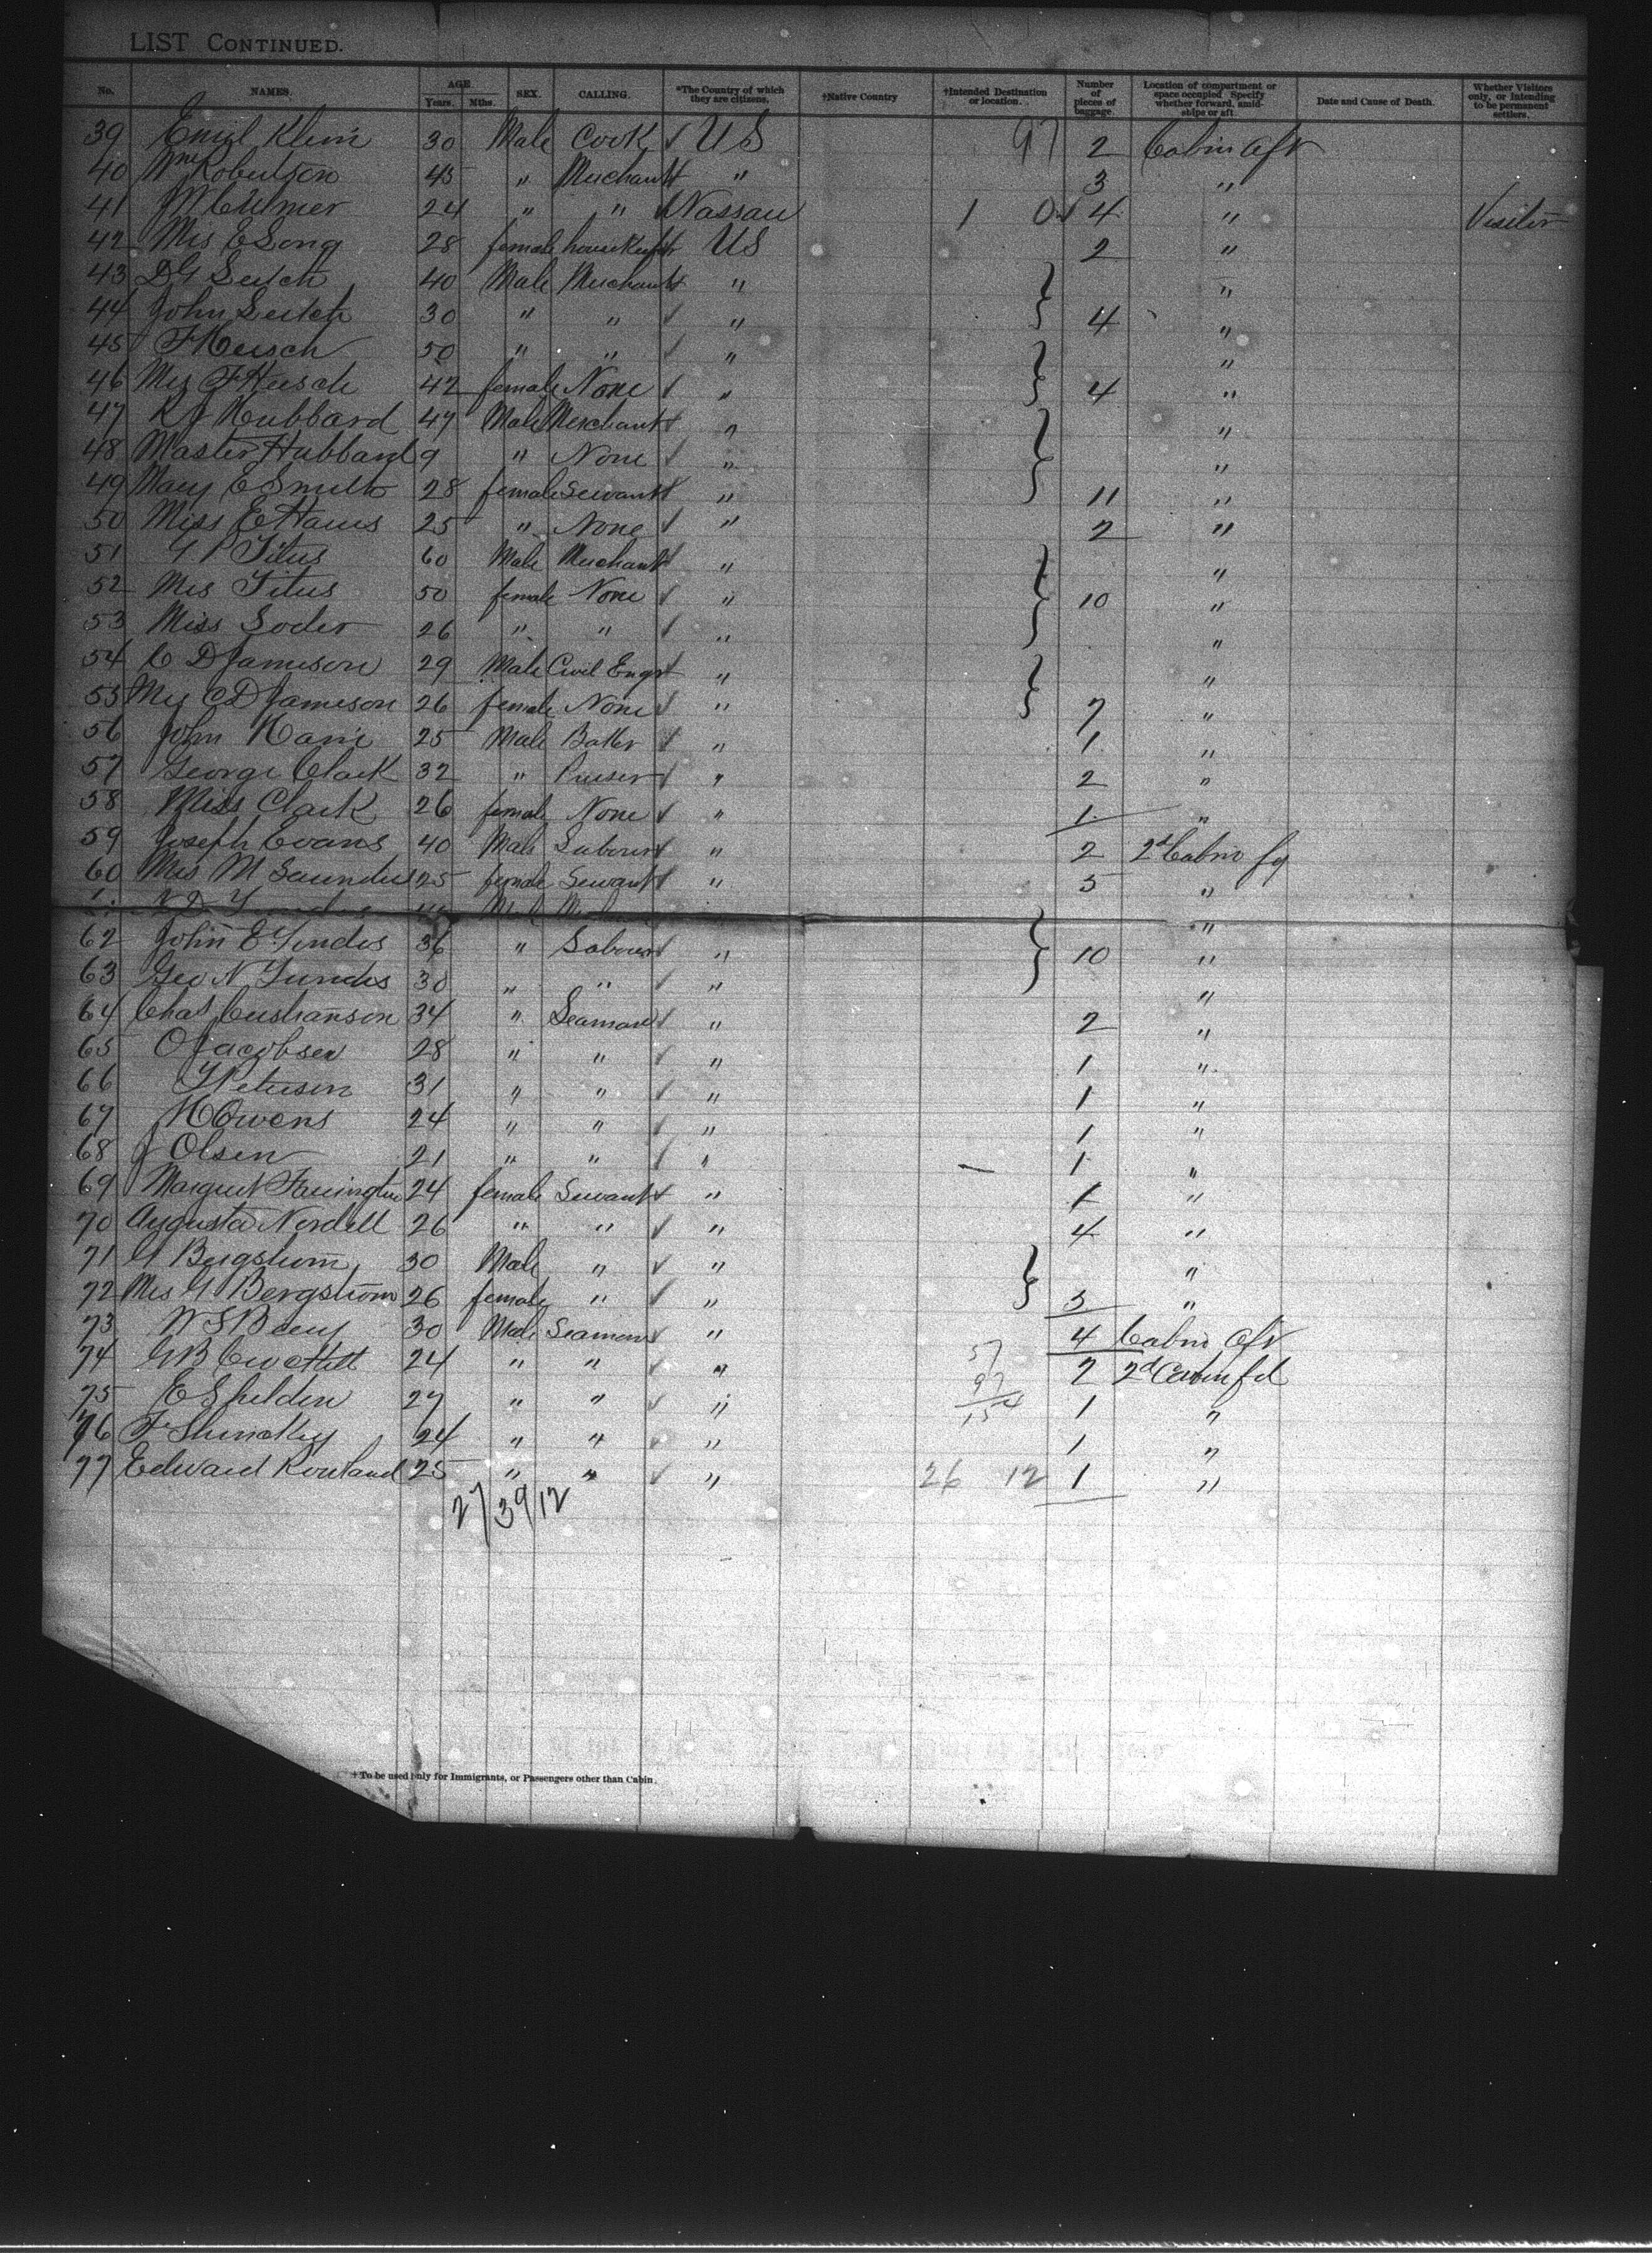 LIST CONTINUED.
No. NAMES. AGE Years. Mths. SEX. CALLING. *The Country of which they are citizens. †Native Country †Intended Destination or location. Number of pieces of baggage. Location of compartment or space occupied. Specify whether forward, amidships or aft Date and Cause of Death. Whether Visitors only, or Intending to be permanent settlers.
39 Emil Klein 30 Male Cook ✓ US 97 2 Cabin aft
40 Wm Robertson 45 " Merchant " 3 "
41 24 " " Nassau 1 0 4 " Visitor
42 Mrs E Long 28 female housekeeper US 2 "
43 D G Leitch 40 Male Merchant " "
44 John Leitch 30 " " ✓ " 4 "
45 F Hersch 50 " " ✓ " "
46 Mrs F Hersch 42 female None ✓ " 4 "
47 R J Hubbard 47 Male Merchant " "
48 Master Hubbard 9 " None ✓ " "
49 Mary E Smith 28 female Servant " 11 "
50 Miss E Harris 25 " None ✓ " 2 "
51 G P Titus 60 Male Merchant " "
52 Mrs Titus 50 female None ✓ " 10 "
53 Miss Soder 26 " " ✓ " "
54 C D Jameson 29 Male Civil Engr " "
55 Mrs C D Jameson 26 female None ✓ " 7 "
56 John 25 Male ✓ " 1 "
57 George Clark 32 " Purser ✓ " 2 "
58 Miss Clark 26 female None ✓ " 1 "
59 Joseph Evans 40 Male Labourer " 2 2d Cabin fd
60 Mrs M Saunders 25 female Servant " 5 "
"
62 John E 36 " Labourer " 10 "
63 Geo N 30 " " ✓ " "
64 Chas Cushanson 34 " Seaman ✓ " 2 "
65 O Jacobsen 28 " " ✓ " 1 "
66 Peterson 31 " " ✓ " 1 "
67 H Owens 24 " " ✓ " 1 "
68 J Olsen 21 " " ✓ " 1 "
69 Margret Farrington 24 female Servant " 1 "
70 Augusta Nordell 26 " " ✓ " 4 "
71 G Bergstrom 30 Male " ✓ " "
72 Mrs G Bergstrom 26 female " ✓ " 3 "
73 W S 30 Male Seaman ✓ " 4 Cabin Aft
74 G B 24 " " ✓ " 57 2 2d Cabin fd
75 E Shelden 27 " " ✓ " 97 154 1 "
76 F 24 " " ✓ " 1 "
77 Edward Rowland 25 " " ✓ " 26 12 1 "
27/39/12
†To be used only for Immigrants, or Passengers other than Cabin.